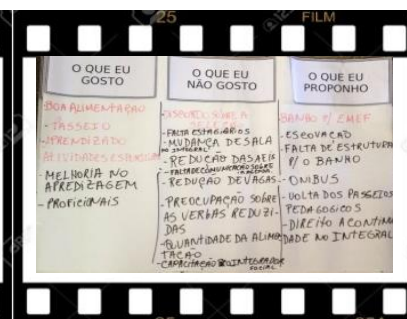 25
FILM
O QUE EU
GOSTO
BOA ALIMENTAÇÃO
- PASSEIO
- APRENDIZADO
ATIVIDADES
- MELHORIA NO
APREDIZAGEM
- PROFICIONAIS
O QUE EU
NÃO GOSTO
SOBRE A
- FALTA ESTAGIÁRIOS
- MUDANÇA DE SALA
NO INTEGRAL
- REDUÇÃO DAS AEIS
- FALTA DE COMUNICAÇÃO SOBRE
- REDUÇÃO DE VAGAS
- PREOCUPAÇÃO SOBRE
AS VERBAS REDUZI-
DAS
- QUANTIDADE DA ALIMEN
TAÇÃO
- CAPACITAÇÃO INTEGRADOR
SOCIAL
O QUE EU
PROPONHO
BANHO P/ EMEF
- ESCOVAÇÃO
- FALTA DE ESTRUTURA
P/ O BANHO
- ONIBUS
- VOLTA DOS PASSEIOS
PEDAGOGICOS
- DIREITO A CONTINU
DADE NO INTEGRAL